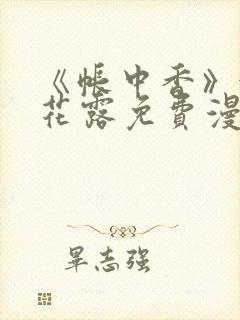 《帐中香》
花露免费漫
畢志强